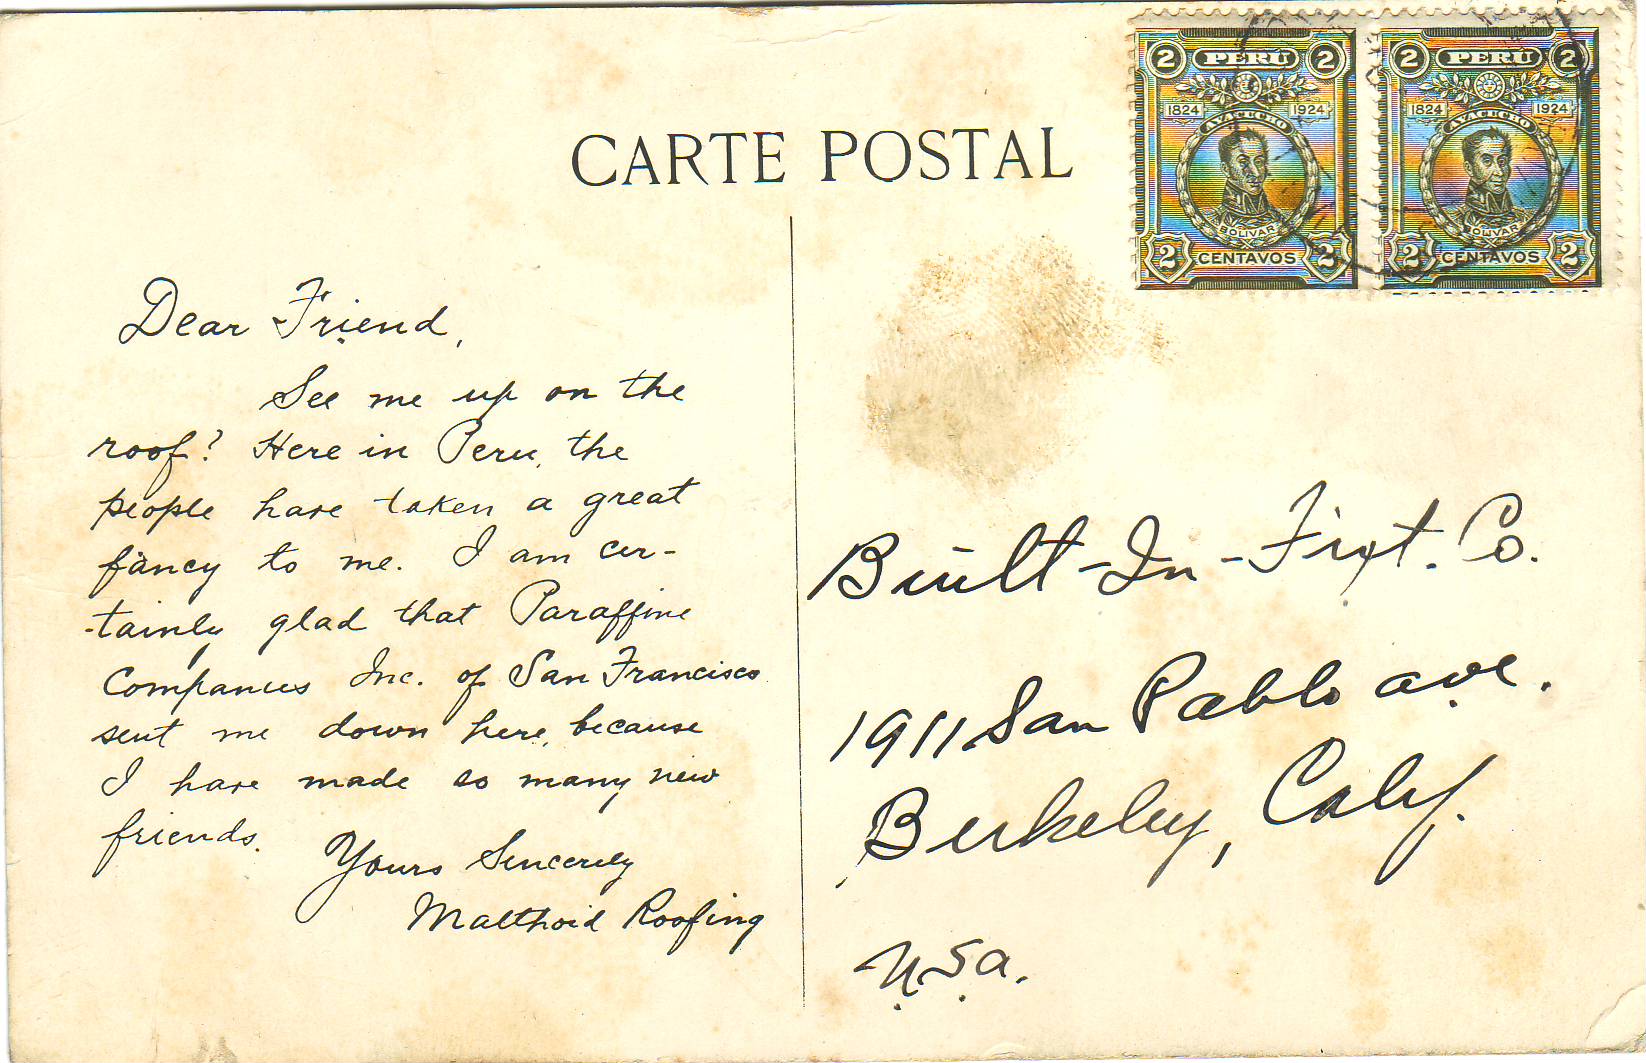 CARTE POSTAL
2 PERU 2
1824 1924
AYACUCHO
BOLIVAR
2 CENTAVOS 2
2 PERU 2
1824 1924
AYACUCHO
BOLIVAR
2 CENTAVOS 2
Dear Friend,
See me up on the
roof? Here in Peru, the
people have taken a great
fancy to me. I am cer-
-tainly glad that Paraffine
Companies Inc. of San Francisco
sent me down here, because
I have made so many new
friends.
Yours Sincerely
Malthoid Roofing
Built-In-Fixt. Co.
1911 San Pablo ave.
Berkeley, Calif.
U.S.a.